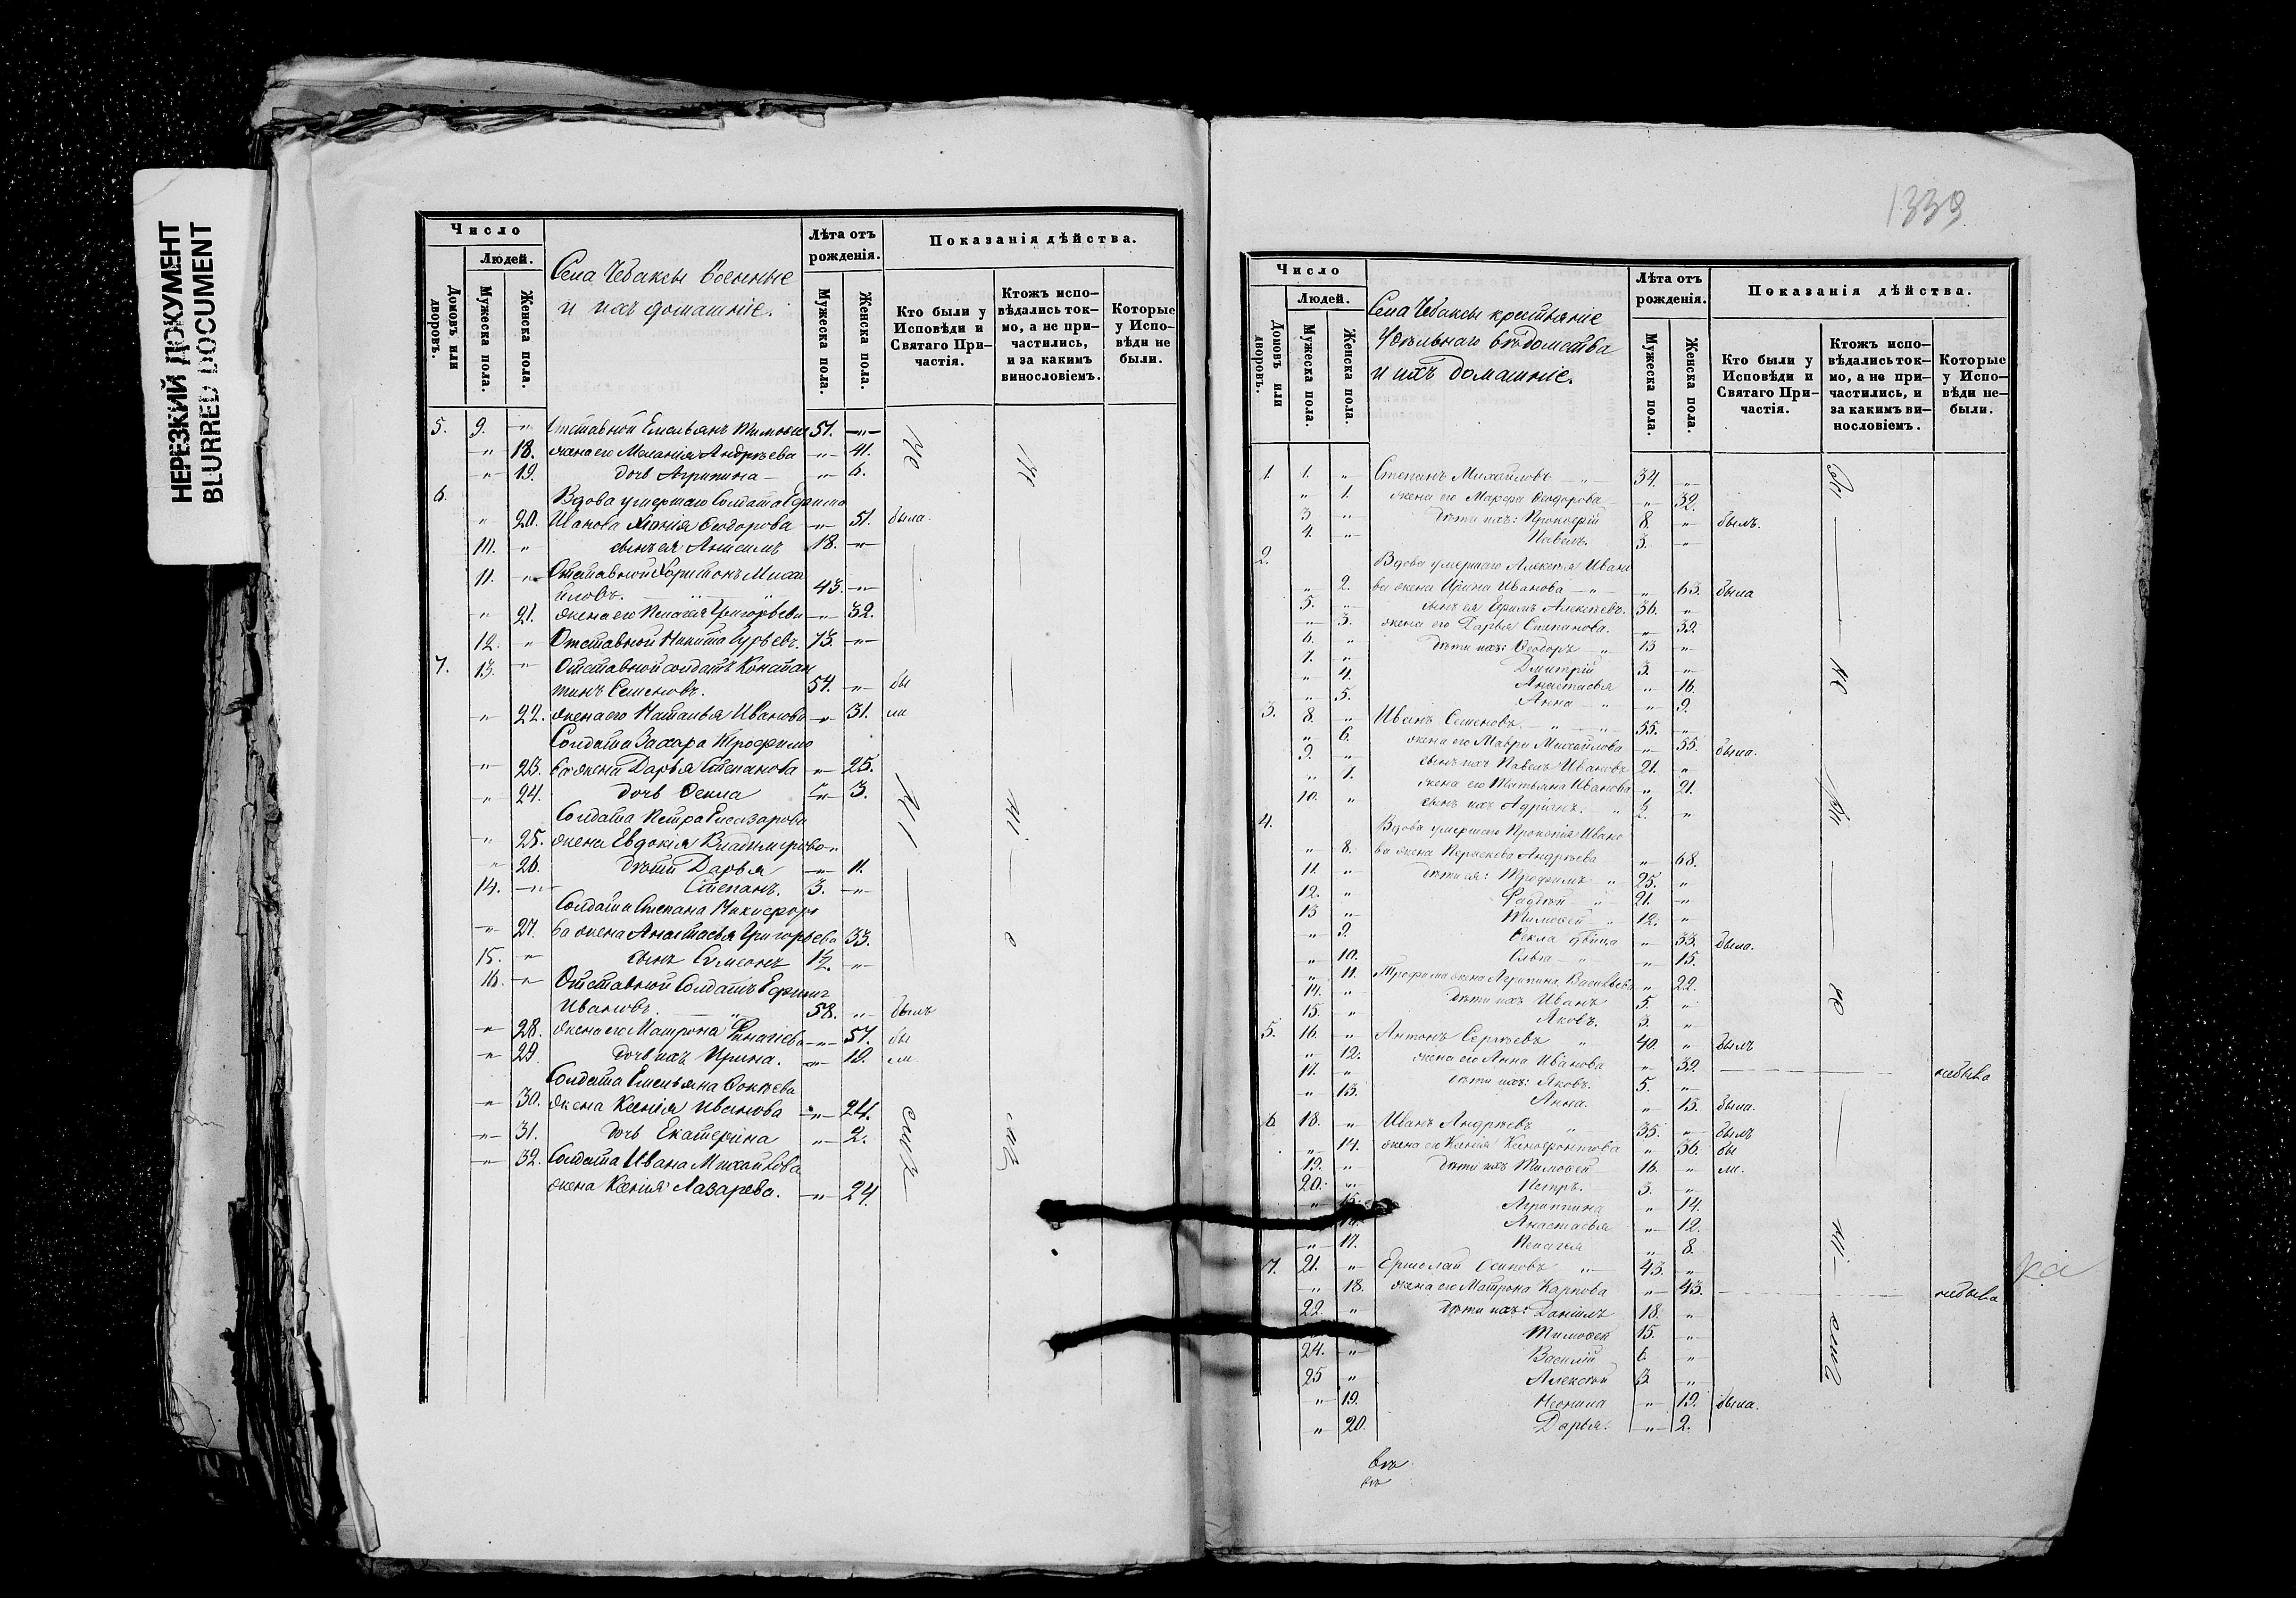 НЕРЕЗКИЙ ДОКУМЕНТ
BLURRED DOCUMENT
Число
Людей.
Домовъ или дворовъ.
Мужеска пола.
Женска пола.
Села Чебаксы военные
и ихъ домашніе.
Лѣта отъ
рожденія.
Мужеска пола.
Женска пола.
Показанія дѣйства.
Кто были у
Исповѣди и
Святаго При-
частія.
Ктожъ испо-
вѣдались ток-
мо, а не при-
частились,
и за какимъ
винословіемъ.
Которые
у Испо-
вѣди не
были.
5. 9. " Отставной Емельянъ 51. "
" 18. жена его Маланія Андреева " 41.
" 19. дочь Агрипина " 6.
6. Вдова умершаго Солдата Ефима
" 20. Иванова Ксенія Ѳеодорова " 51. была.
10. " сынъ ея Анисимъ 18. "
11. " Отставной Харитонъ Миха
йловъ. 43. "
" 21. жена его Пелагея Григорьева " 32.
12. " Отставной Никита Гурьевъ. 73. "
7. 13. " Отставной солдатъ Констан
тинъ Семеновъ. 54. " бы
" 22. жена его Наталья Иванова " 31. ли
Солдата Захара Трофимо
" 23. ва жена Дарья Степанова " 25.
" 24. дочь Ѳекла " 3.
Солдата Петра Елеазарова
" 25. жена Евдокія Владимірова
" 26. дѣти Дарья " 11.
14. " Степанъ. 3. "
Солдата Степана Никифоро
" 27. ва жена Анастасья Григорьева 33.
15. " сынъ Симеонъ 1/2. "
16. " Отставной Солдатъ Ефимъ
Ивановъ. 58. " былъ
" 28. жена его Матрона Игнатьева " 57. бы
" 29. дочь ихъ Ирина. " 19. ли
Солдата Емельяна Фокѣева
" 30. жена Ксенія Иванова " 24.
" 31. дочь Екатерина " 2.
" 32. Солдата Ивана Михайлова
жена Ксенія Лазарева. " 24.
1339
Число
Людей.
Домовъ или дворовъ.
Мужеска пола.
Женска пола.
Села Чебаксы крестьяніе
Удѣльнаго вѣдомства
и ихъ домашніе.
Лѣта отъ
рожденія.
Мужеска пола.
Женска пола.
Показанія дѣйства.
Кто были у
Исповѣди и
Святаго При-
частія.
Ктожъ испо-
вѣдались ток-
мо, а не при-
частились, и
за какимъ ви-
нословіемъ.
Которые
у Испо-
вѣди не-
были.
1. 1. " Степанъ Михайловъ 34. "
" 1. жена его Марфа Ѳеодорова " 32.
3 " дѣти ихъ: Прокофій 8. " былъ.
4. " Павелъ. 3. "
2. Вдова умершаго Алексѣя Ивано
" 2. ва жена Ирина Иванова " 63. была
5. " сынъ ея Ефимъ Алексѣевъ. 36. "
" 3. жена его Дарья Степанова. " 39.
6. " дѣти ихъ: Ѳеодоръ 13 "
7. " Дмитрій 3. "
" 4. Анастасья " 16.
" 5. Анна " 9.
3. 8. " Иванъ Семеновъ 55. "
" 6. жена его Мавра Михайлова " 55. была.
9. " сынъ ихъ Павелъ Ивановъ 21. "
" 7. жена его Татьяна Иванова " 21.
10. " сынъ ихъ Адріанъ. "
4. Вдова умершаго Прокопія Ивано
" 8. ва жена Параскева Андреева " 68.
11. " дѣти ея: Трофимъ 25. "
12. " Фадѣй 21. "
13 " Тимоѳей 12. "
" 9. Ѳекла дѣвица " 33. была.
" 10. Ольга " 15.
" 11. Трофима жена Агрипина Васильева " 22.
14. " дѣти ихъ Иванъ 5. "
15. " Яковъ. 3. "
5. 16. " Антонъ Сергѣевъ 40. " былъ
" 12. жена его Анна Иванова " 39 небыла
17. " дѣти ихъ: Яковъ. 5. "
" 13. Анна. " 13. была.
6 18. " Иванъ Андреевъ 35. " былъ
" 14. жена его Ксенія " 36. бы
19. " дѣти ихъ Тимоѳей 16. " ли.
20. " Петръ. 3. "
" 15. Агриппина " 14.
16. Анастасья " 12.
" 17. Пелагея " 8.
7. 21. " Ермолай Осиповъ 43. "
" 18. жена его Матрона Карпова " 43. небыла
22. " дѣти ихъ: Даніилъ 18. "
Тимоѳей 15. "
24. " Василій 6 "
25 " Алексѣй 3. "
" 19. Неонила " 19. была.
" 20. Дарья. " 2.